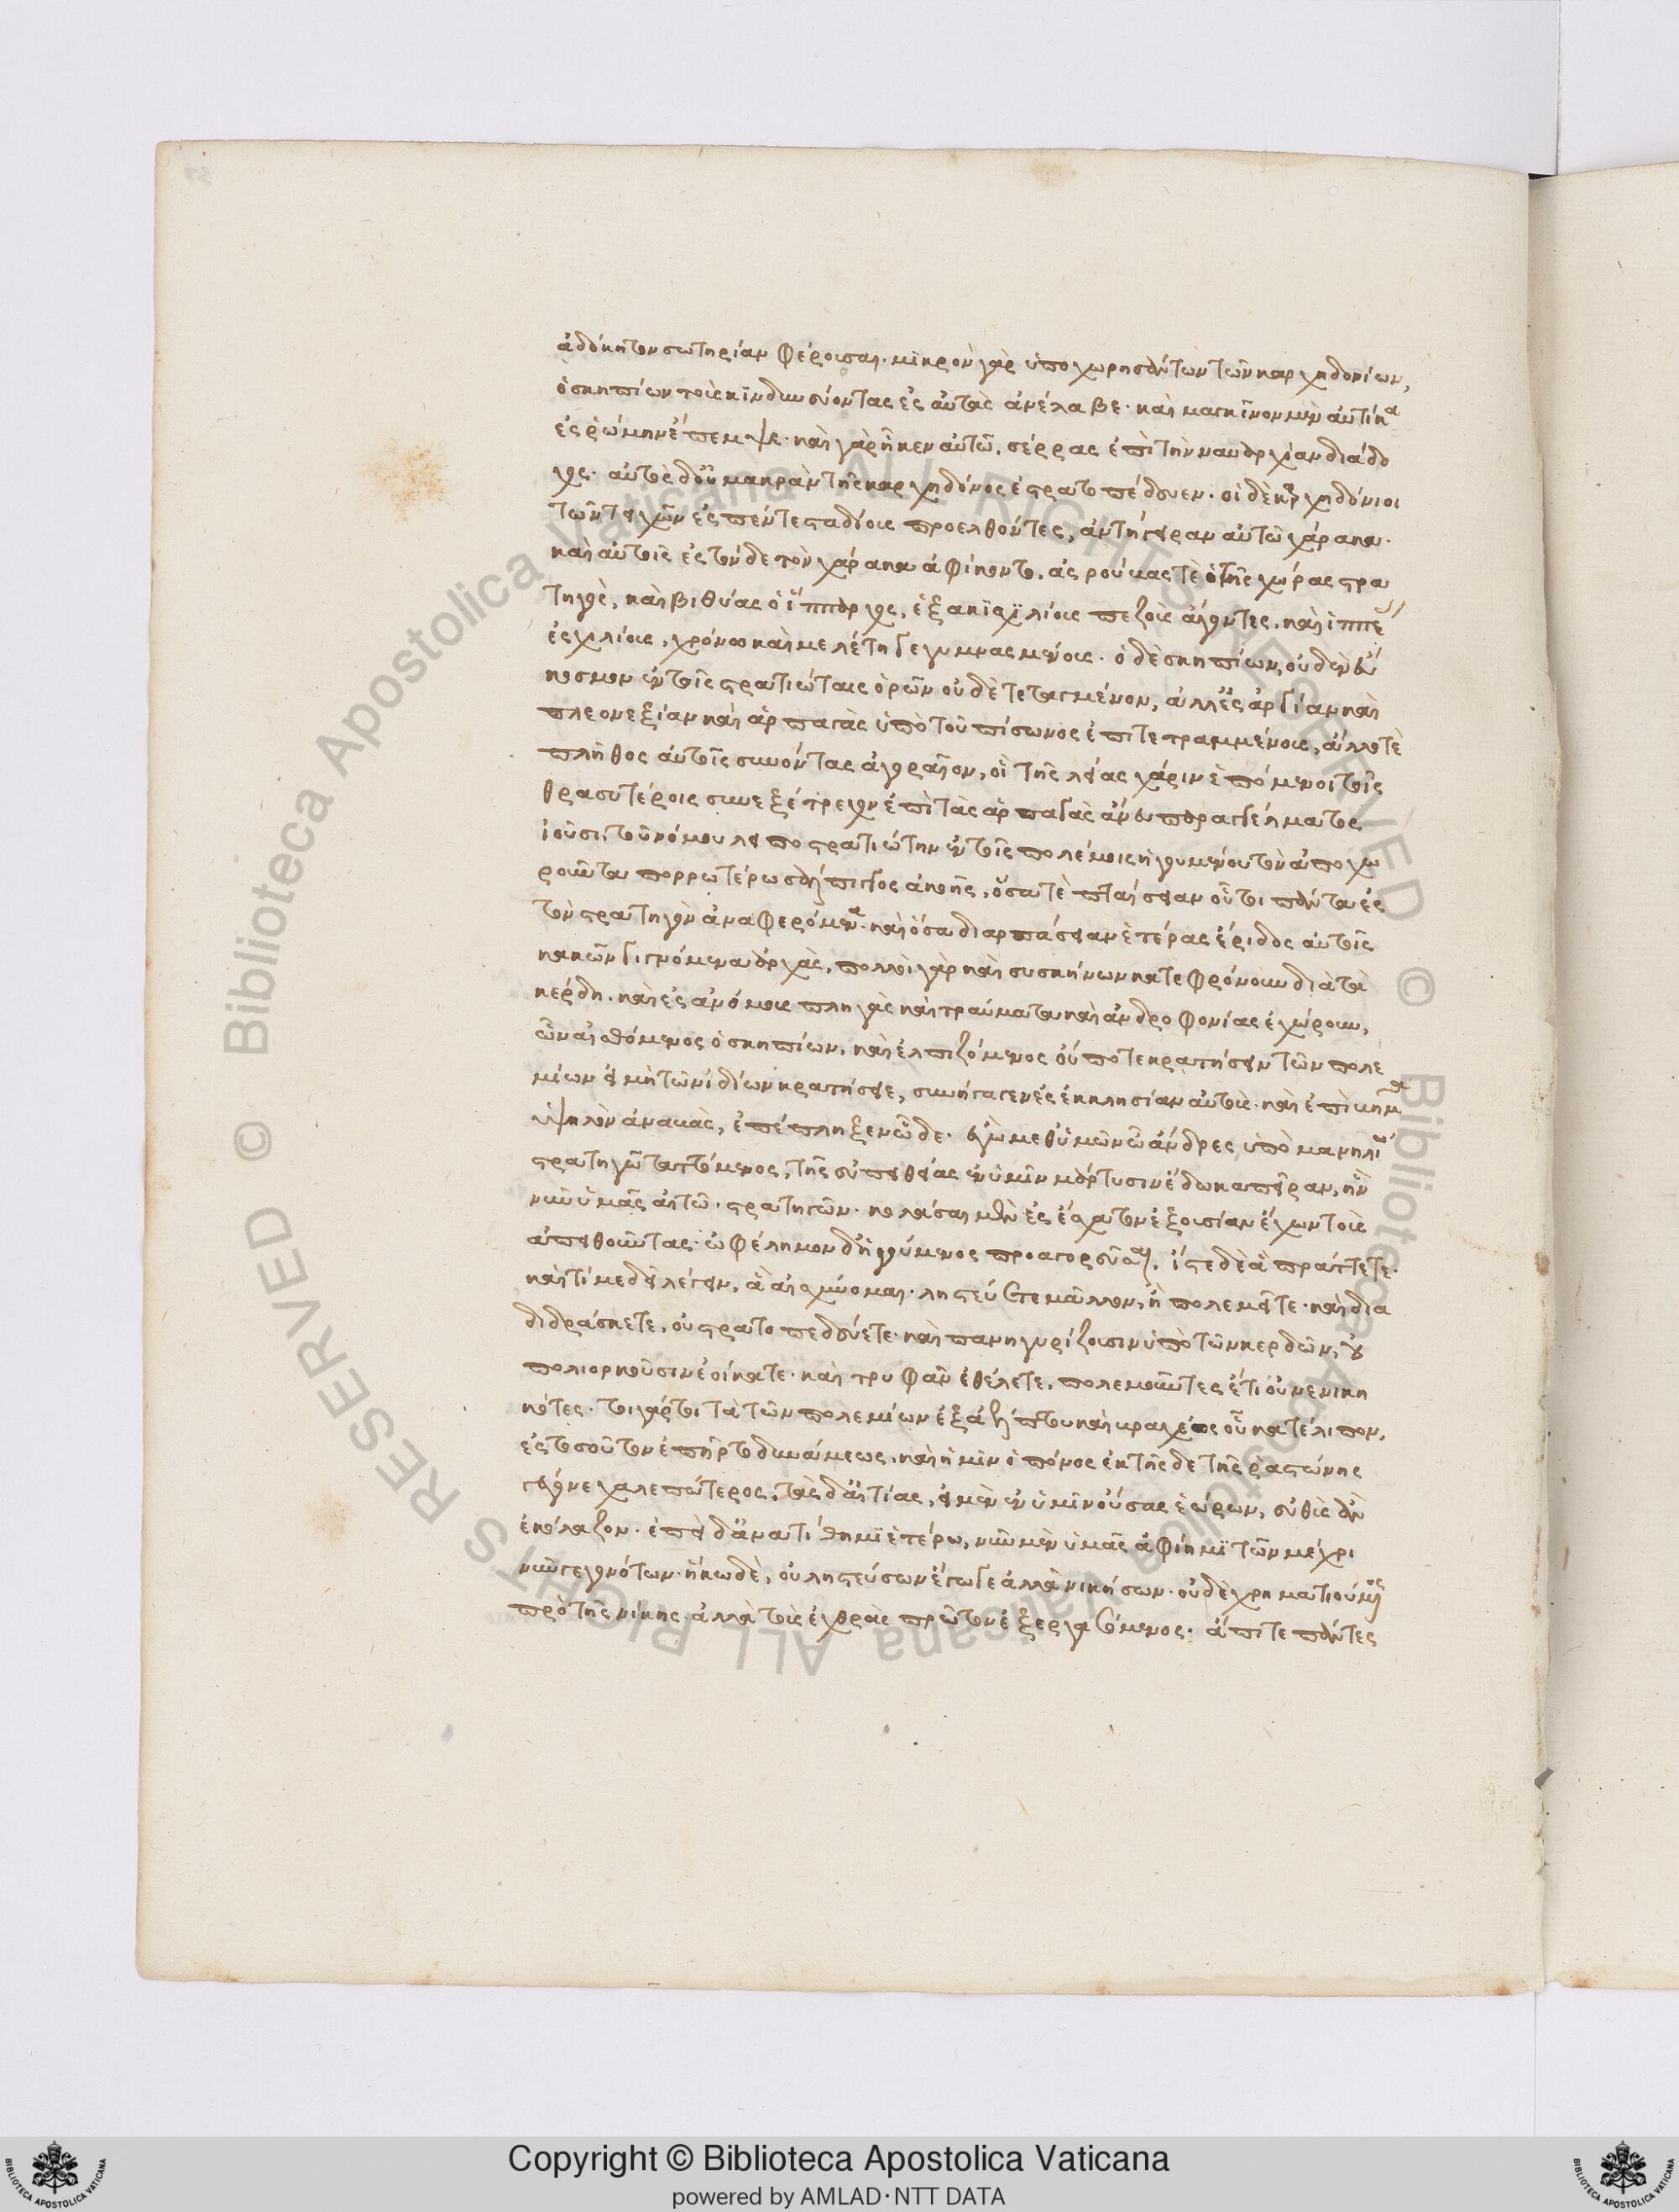 ἀδόκητον σωτηρίαν φέρουσαι. μικρὸν γὰρ ὑποχωρησάντων τῶν καρχηδονίων,
ὁ σκηπίων τοὺς κινδυνεύοντας ἐς αὐτὰς ἀνέλαβε. καὶ μαγκῖνον μὲν αὐτίκα
ἐς ῥώμην ἔπεμψε. καὶ γὰρ ἧκεν αὐτῶ, σέρρας ἐπὶ τὴν ναυαρχίαν διάδο
χος. αὐτὸς δ' οὐ μακρὰν τῆς καρχηδόνος ἐστρατοπέδευεν. οἱ δὲ καρχηδόνιοι
τῶν τειχῶν ἐς πέντε σταδίους προελθόντες, ἀντήγειραν αὐτῶ χάρακα.
καὶ αὐτοῖς ἐς τόνδε τὸν χάρακα ἀφίκοντο, ἀσρούβας τὲ ὁ τῆς χώρας στρα
τηγὸς, καὶ βιθύας ὁ ἵππαρχος, ἑξακισχιλίους πεζοὺς ἄγοντες, καὶ ἱππέας
ἐς χιλίους, χρόνω καὶ μελέτη γεγυμνασμένους. ὁ δὲ σκηπίων, οὐδὲν εὔ
κοσμον ἐν τοῖς στρατιώταις ὁρῶν οὐδὲ τεταγμένον, ἀλλ' ἐς ἀργίαν καὶ
πλεονεξίαν καὶ ἁρπαγὰς ὑπὸ τοῦ πίσωνος ἐπιτετραμμένους, ἄλλο τὲ
πλῆθος αὐτοῖς συνόντας ἀγοραῖον, οἳ τῆς λείας χάριν ἑπόμενοι τοῖς
θρασυτέροις συνεξέτρεχον ἐπὶ τὰς ἁρπαγὰς ἄνευ παραγγέλματος
ἰοῦσι, τοῦ νόμου λειποστρατιώτην ἐν τοῖς πολέμοις ἡγουμένου τὸν ἀποχω
ροῦντα πορρωτέρω σάλπιγγος ἀκοῆς, ὅσα τὲ πταίσειαν οὗτοι πάντα ἐς
τὸν στρατηγὸν ἀναφερόμενα. καὶ ὅσα διαρπάσειαν ἑτέρας ἔριδος αὐτοῖς
κακῶν γιγνόμενα ἀρχὰς, πολλοὶ γὰρ καὶ συσκήνων κατεφρόνουν διὰ τὰ
κέρδη. καὶ ἐς ἀνόμους πληγὰς καὶ τραύματα καὶ ἀνδροφονίας ἐχώρουν,
ὧν αἰσθόμενος ὁ σκηπίων, καὶ ἐλπιζόμενος οὔποτε κρατήσειν τῶν πολε
μίων εἰ μὴ τῶν ἰδίων κρατήσειε, συνήγαγεν ἐς ἐκκλησίαν αὐτοὺς. καὶ ἐπὶ βῆμα
ὑψηλὸν ἀναβὰς, ἐπέπληξεν ὧδε. ἐγὼ μεθ' ὑμῶν ὦ ἄνδρες ὑπὸ μανηλίω
στρατηγῶ ταττόμενος, τῆς εὐπειθείας ἐν ὑμῖν μάρτυσιν ἔδωκα πεῖραν, ἣν
νῦν ὑμᾶς αἰτῶ στρατηγῶν. κολάσαι μὲν ἐς ἔσχατον ἐξουσίαν ἔχων τοὺς
ἀπειθοῦντας. ὠφέλιμον δ' ἡγούμενος προαγορεῦσαι. ἴστε δὲ ἃ πράττετε.
καὶ τί με δεῖ λέγειν, ἃ αἰσχύνομαι. ληστεύετε μᾶλλον, ἢ πολεμεῖτε. καὶ δια
διδράσκετε, οὐ στρατοπεδεύετε. καὶ πανηγυρίζουσιν ὑπὸ τῶν κερδῶν, οὐ
πολιορκοῦσιν ἐοίκατε. καὶ τρυφᾶν ἐθέλετε, πολεμοῦντες ἔτι οὐ νενικη
κότες. τοιγάρτοι τὰ τῶν πολεμίων ἐξ ἀέλπτου καὶ βραχέος οὗ κατέλιπον,
ἐς τοσοῦτον ἐπῆρτο δυνάμεως, καὶ ἡμῖν ὁ πόνος ἐκ τῆσδε τῆς ῥαστώνης
γέγονε χαλεπώτερος, τὰς δ' αἰτίας, εἰ μὲν ἐν ὑμῖν οὔσας ἑώρων, εὐθὺς ἂν
ἐκόλαζον. ἐπεὶ δ' ἀνατίθημι ἑτέρω, νῦν μὲν ὑμᾶς ἀφίημι τῶν μέχρι
νῦν γεγονότων. ἥκω δὲ, οὐ ληστεύσων ἔγωγε ἀλλὰ νικήσων. οὐδὲ χρηματιούμενος
πρὸ τῆς νίκης. ἀλλὰ τοὺς ἐχθροὺς πρῶτον ἐξεργασόμενος. ἄπιτε πάντες